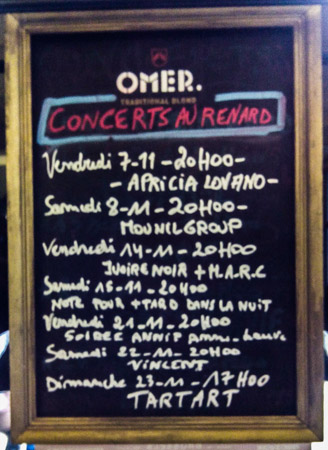 OMER.
TRADITIONAL BLOND
CONCERTS AU RENARD
Vendredi 7-11-20H00-
- APRICIA LOVANO-
Samedi 8-11-20H00-
MOUNIL GROUP
Vendredi 14-11-20H00
IVOIRE NOIR + M.A.R.C
Samedi 15-11-20H00
NOTE POUR + TARD DANS LA NUIT
Vendredi 21-11-20H00
SOIREE
Samedi 22-11-20H00
VINCENT
Dimanche 23-11-17H00
TARTART